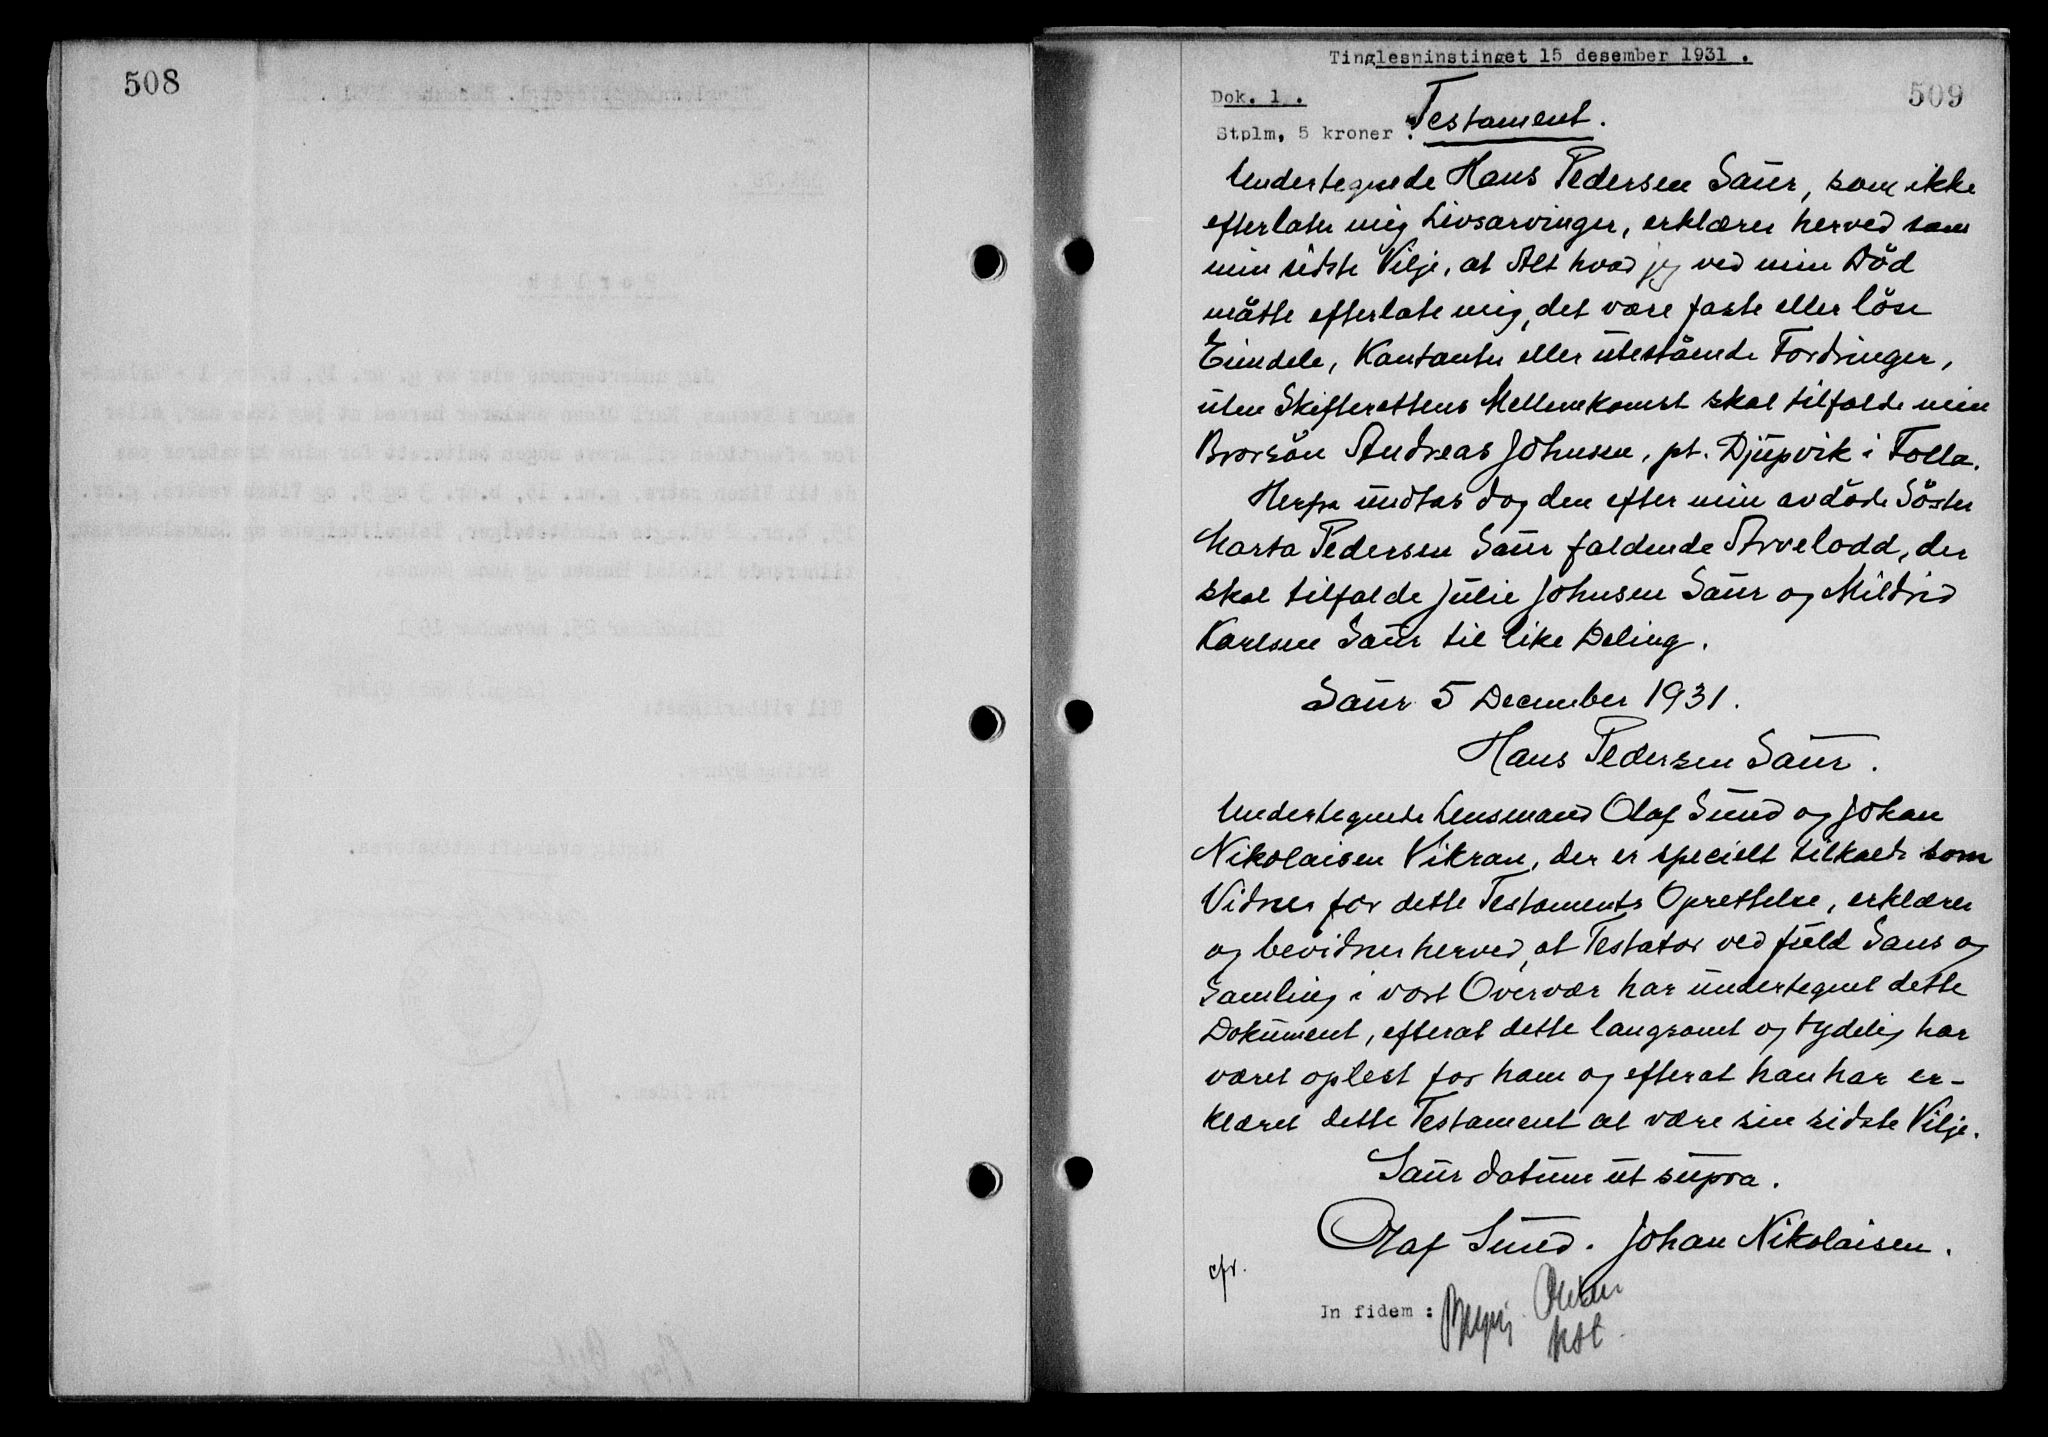 508
Tinglesninstinget 15 desember 1931 .
509
Dok. 1 .
Stplm. 5 kroner .
Testament.
Undertegnede Hans Pedersen Saur, som ikke
efterlater mig Livsarvinger, erklærer herved som
min sidste Vilje, at Alt hvad jeg ved min Död
måtte efterlate mig, det være faste eller löse
Eiendele, Kontanter eller utestående Fordringer,
uten Skifterettens Mellemkomst skal tilfalde min
Brorsön Andreas Johnsen, pt. Djupvik i Folla.
Herfra undtas dog den efter min avdöde Söster
Marta Pedersen Saur faldende Arvelodd, der
skal tilfalde Julie Johnsen Saur og Mildrid
Karlsen Saur til like Deling.
Saur 5 December 1931.
Hans Pedersen Saur.
Undertegnede Lensmand Olaf Sund og Johan
Nikolaisen Vikran, der er specielt tilkaldt som
Vidner for dette Testaments Oprettelse, erklærer
og bevidner herved, at Testator ved fuld Sans og
Samling i vort Overvær har undertegnet dette
Dokument, efterat dette langsomt og tydelig har
været oplest for ham og efterat han har er-
klæret dette Testament at være sin sidste Vilje.
Saur datum ut supra.
Olaf Sund. Johan Nikolaisen.
cfr.
In fidem :